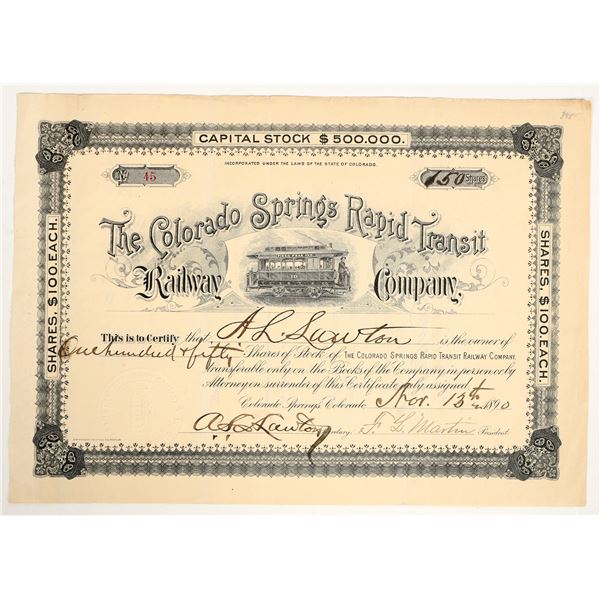 395-
CAPITAL STOCK $500.000.
INCORPORATED UNDER THE LAWS OF THE STATE OF COLORADO.
No 45
150 Shares
The Colorado Springs Rapid Transit
Railway Company.
10
This is to Certify that A L Lawton is the owner of
One hundred & fifty Shares of Stock of THE COLORADO SPRINGS RAPID TRANSIT RAILWAY COMPANY,
transferable only on the Books of the Company in person or by
Attorney on surrender of this Certificate duly assigned
Colorado Springs, Colorado Nov. 13th 1890
A L Lawton Secretary. F L Martin President
SHARES, $100. EACH.
SHARES, $100. EACH.